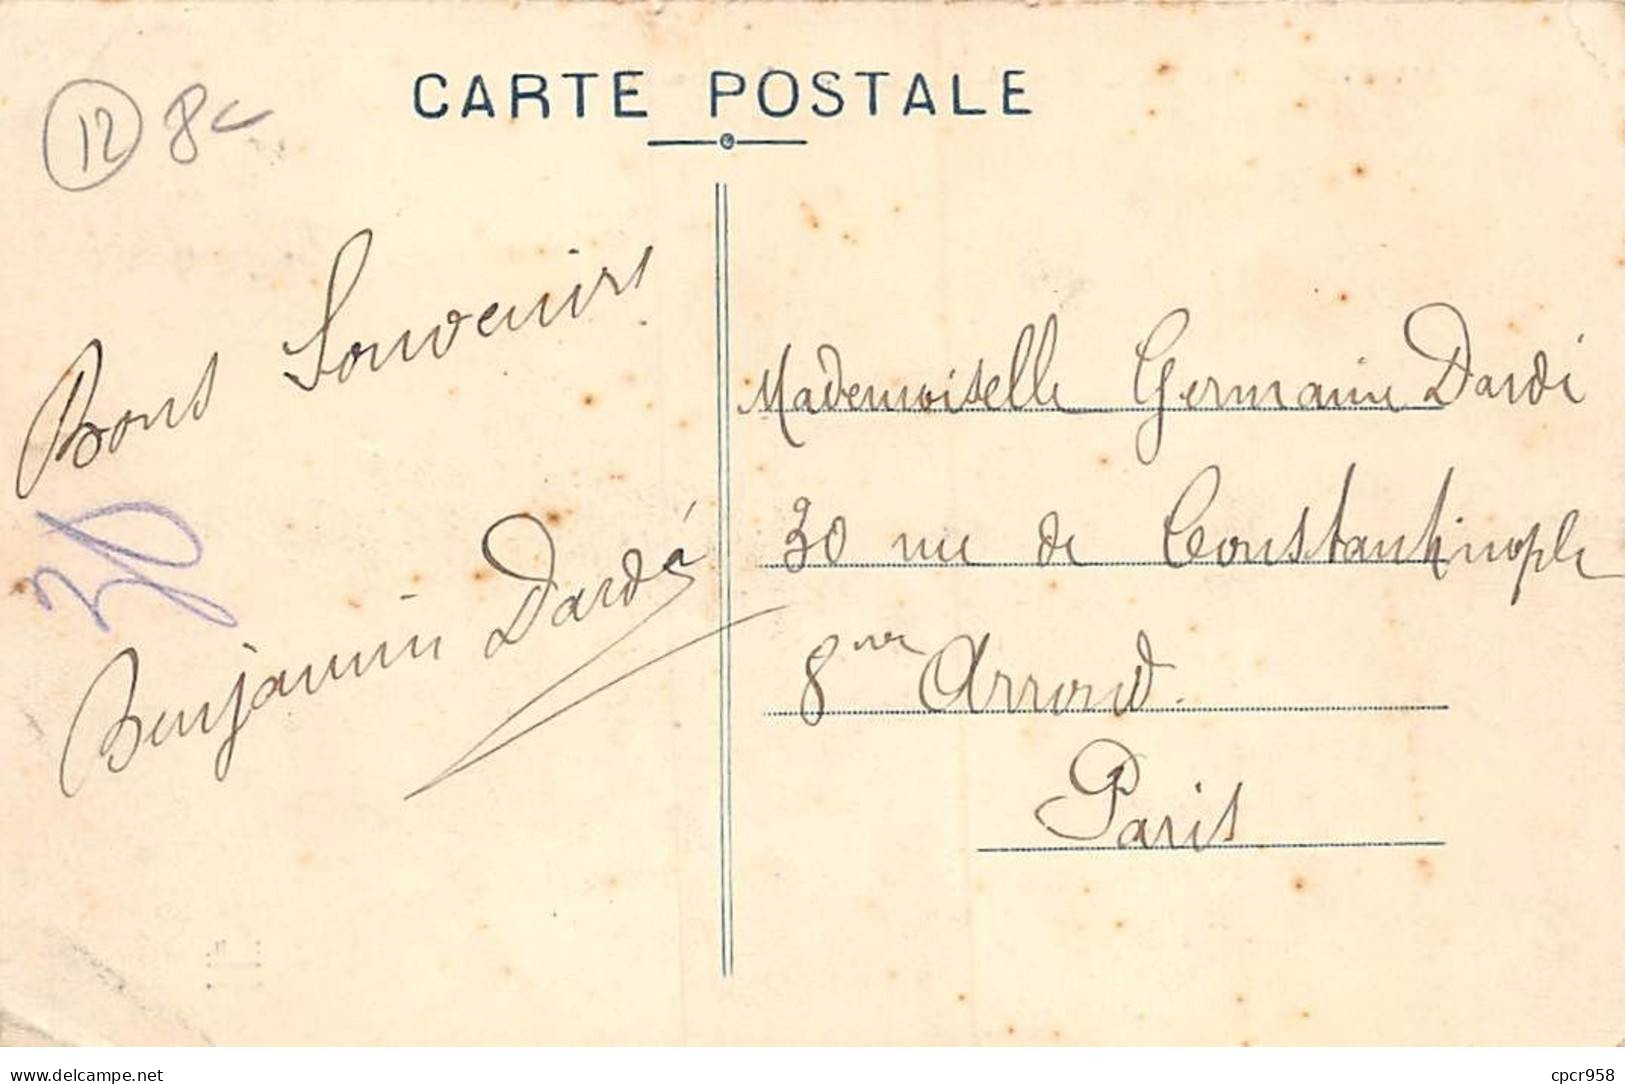 CARTE POSTALE
12 8c
Bons Souvenirs
30
Benjamin Dardé
Mademoiselle Germaine Dardé
30 rue de Constantinople
8me Arrond.
Paris
delcampe.net
cpcr958